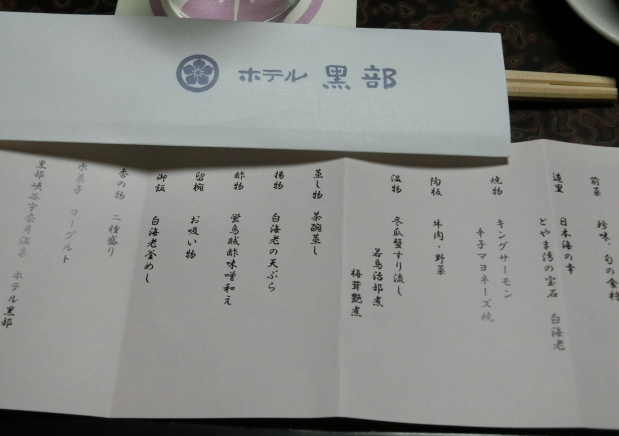 ホテル 黒部
前菜 珍味、旬の食材
造里 日本海の幸
とやま湾の宝石 白海老
焼物 キングサーモン
辛子マヨネーズ焼
陶板 牛肉・野菜
温物 冬瓜蟹すり流し
若鳥治部煮
梅茸艶煮
蒸し物 茶碗蒸し
揚物 白海老の天ぷら
酢物 蛍烏賊酢味噌和え
留椀 お吸い物
御飯 白海老釜めし
香の物 二種盛り
水菓子 ヨーグルト
黒部峡谷宇奈月温泉 ホテル黒部